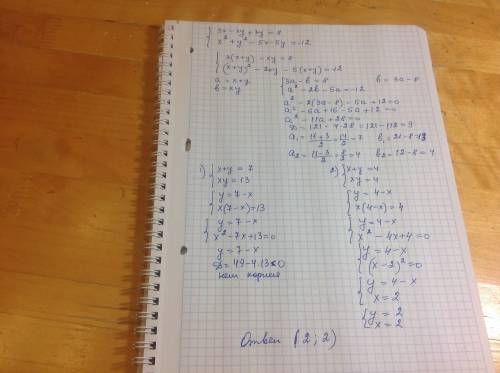 {3x - xy + 3y = 8
x² + y² - 5x - 5y = -12
{3(x+y) - xy = 8
(x+y)² - 2xy - 5(x+y) = -12
a = x+y {3a - b = 8 b = 3a - 8
b = xy a² - 2b - 5a = -12
a² - 2(3a-8) - 5a + 12 = 0
a² - 6a + 16 - 5a + 12 = 0
a² - 11a + 28 = 0
D = 121 - 4·28 = 121 - 112 = 9
a₁ = (11+3)/2 = 14/2 = 7 b₁ = 21 - 8 = 13
a₂ = (11-3)/2 = 8/2 = 4 b₂ = 12 - 8 = 4
1) {x+y = 7
xy = 13
{y = 7-x
x(7-x) = 13
{y = 7-x
x² - 7x + 13 = 0
y = 7-x
D = 49 - 4·13 < 0
нет корней
2) {x+y = 4
xy = 4
{y = 4-x
x(4-x) = 4
{y = 4-x
x² - 4x + 4 = 0
{y = 4-x
(x-2)² = 0
{y = 4-x
x = 2
{y = 2
x = 2
Ответ (2; 2)